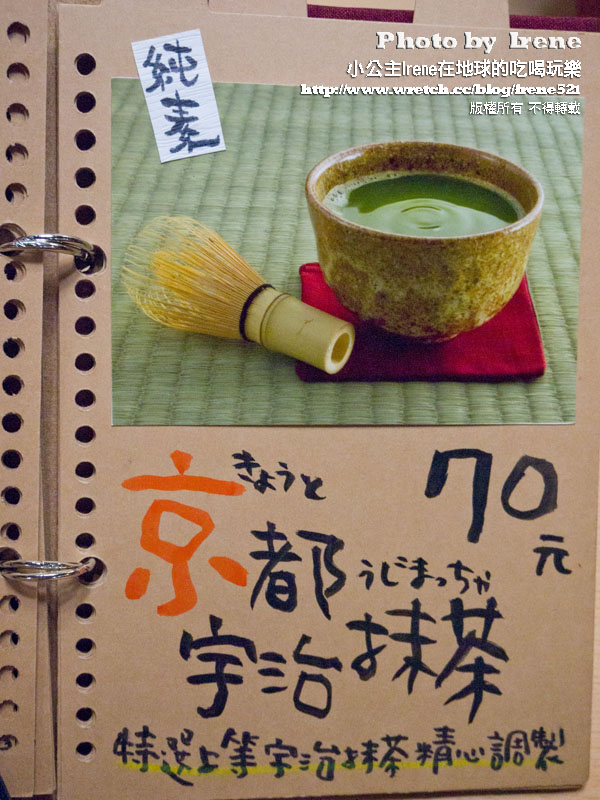 Photo by Irene
小公主Irene在地球的吃喝玩樂
http://www.wretch.cc/blog/irene521
版權所有 不得轉載
純素
きょうと
70元
京都
うじまっちゃ
宇治抹茶
特選上等宇治抹茶精心調製